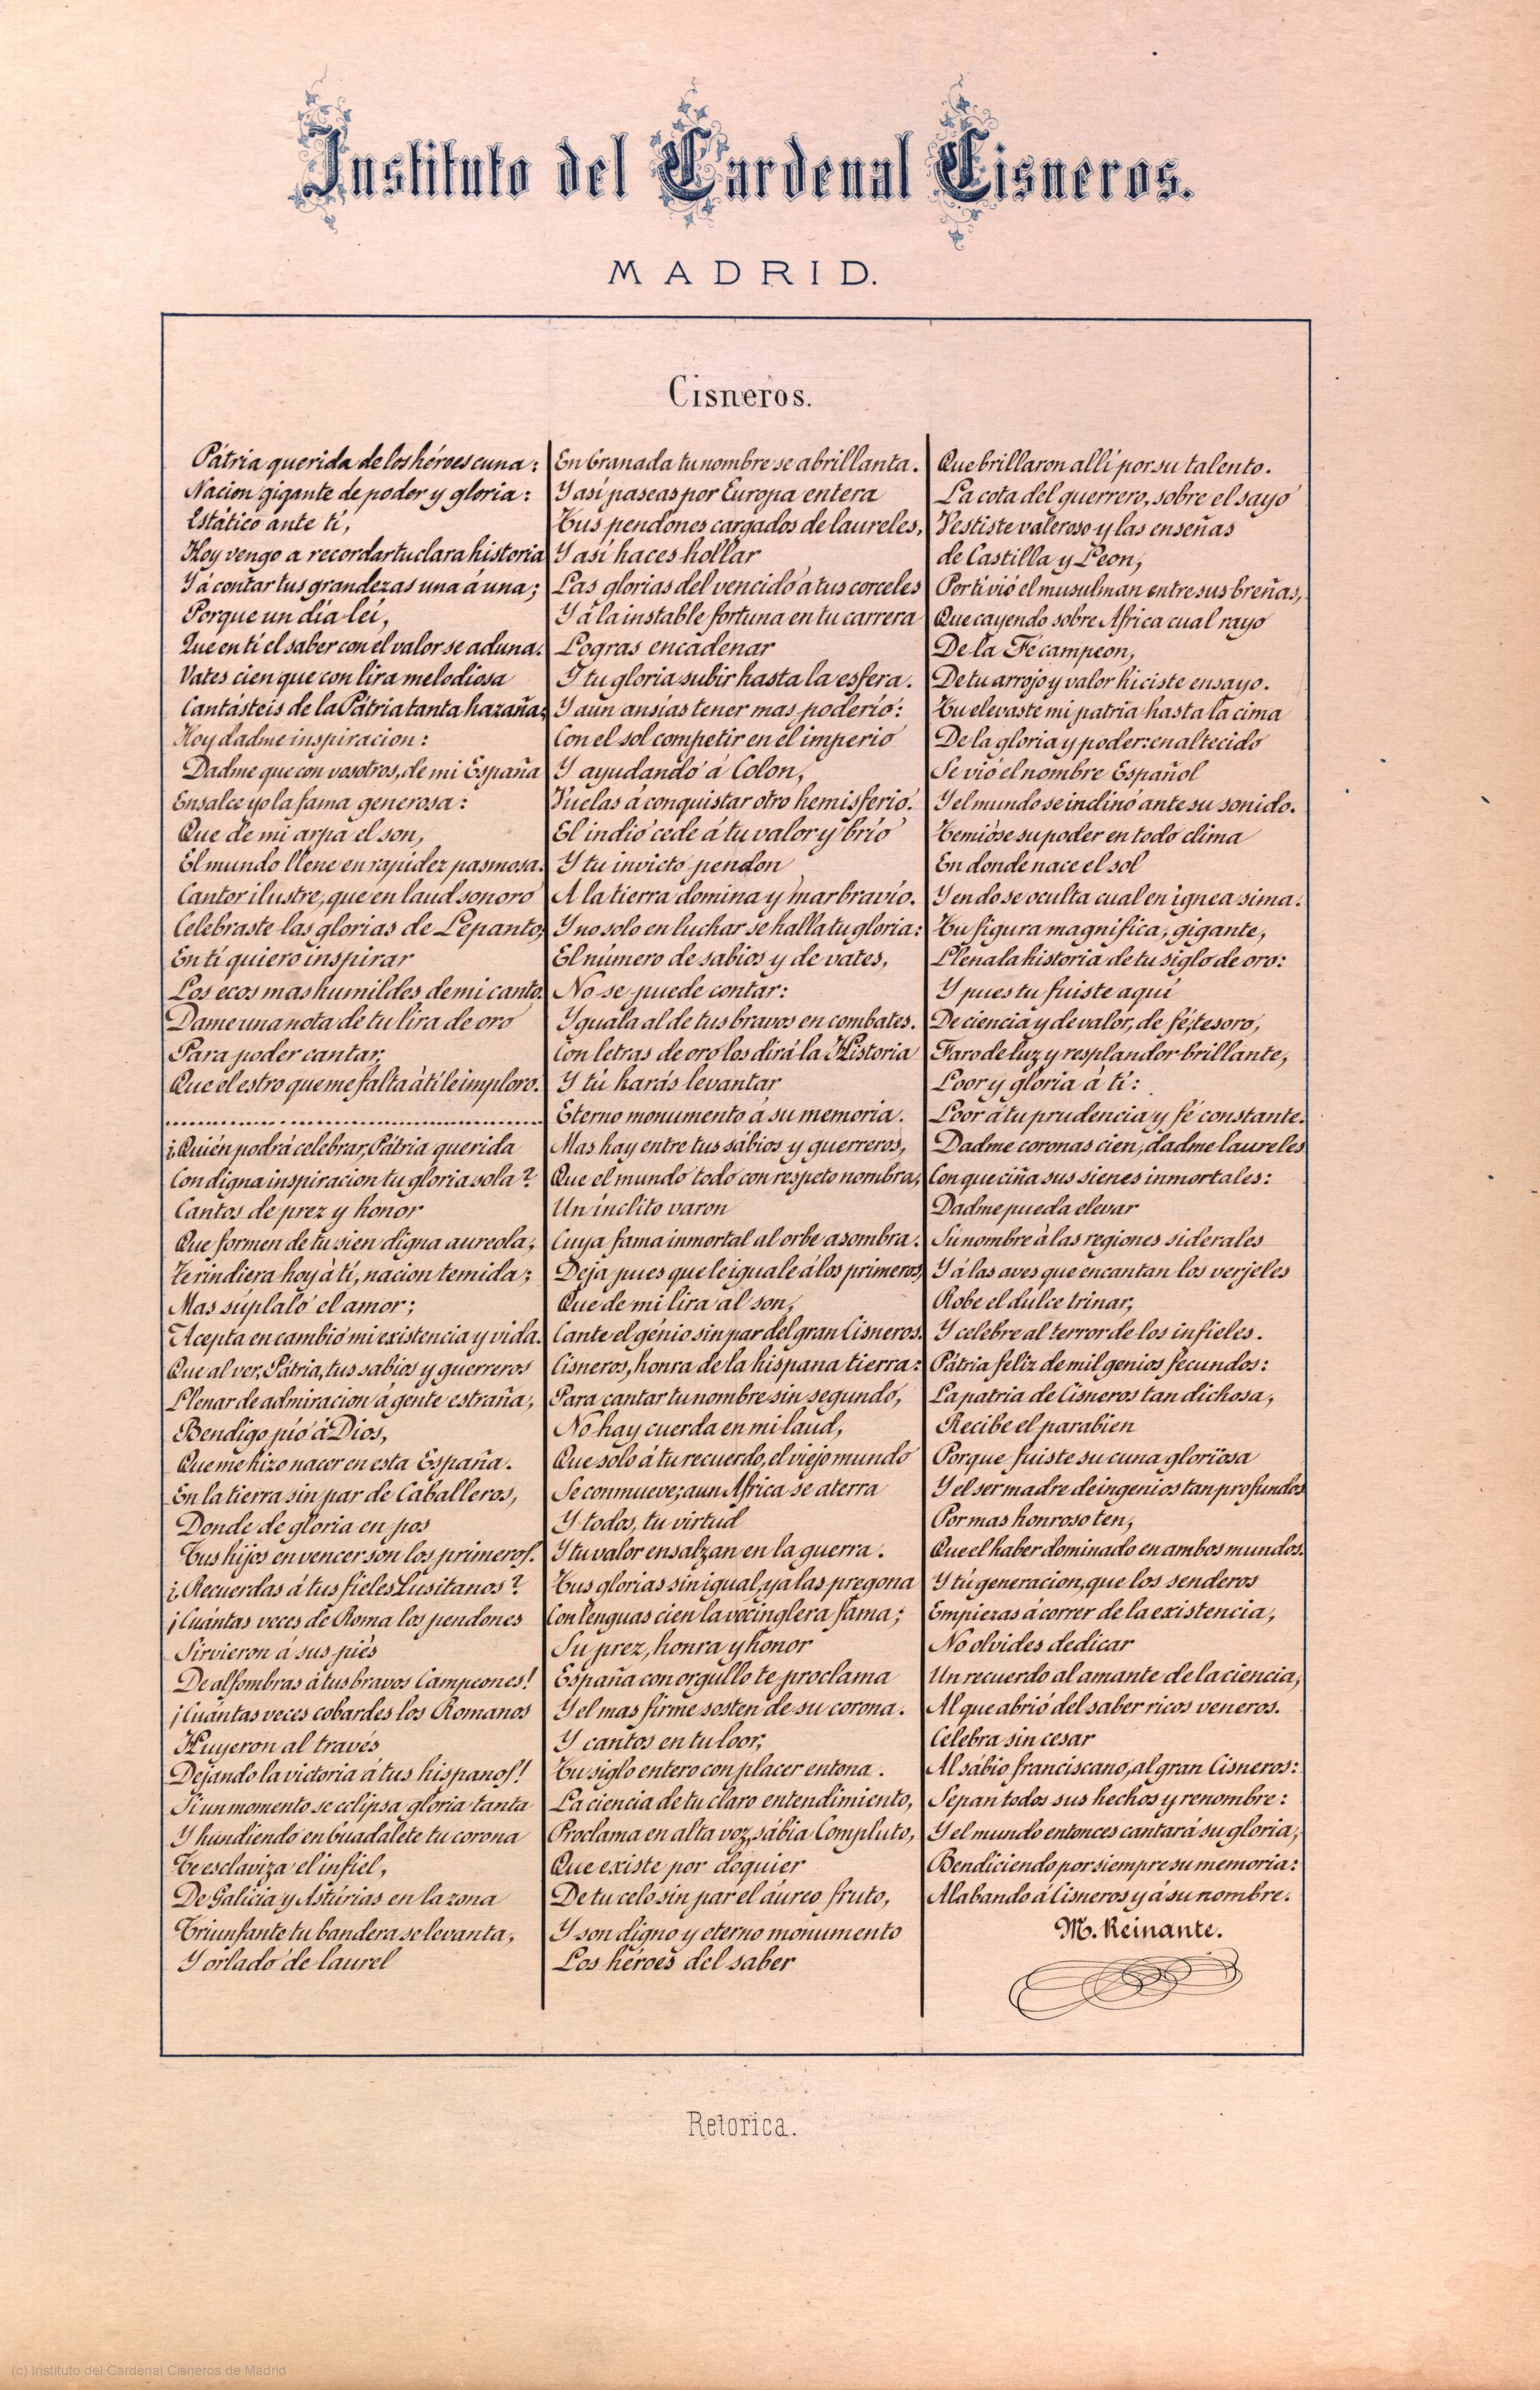 Instituto del Cardenal Cisneros.
MADRID.
Cisneros.
Pátria querida de los héroes cuna:
Nacion gigante de poder y gloria:
Estático ante tí,
Hoy vengo a recordar tu clara historia
Y á contar tus grandezas una á una;
Porque un día leí,
Que en tí el saber con el valor se aduna.
Vates cien que con lira melodiosa
Cantásteis de la Pátria tanta hazaña;
Hoy dadme inspiracion:
Dadme que con vosotros, de mi España
Ensalce yo la fama generosa:
Que de mi arpa el son,
El mundo llene en rapidez pasmosa.
Cantor ilustre, que en laud sonoro
Celebraste las glorias de Lepanto,
En tí quiero inspirar
Los ecos mas humildes de mi canto.
Dame una nota de tu lira de oro
Para poder cantar,
Que el estro que me falta à tí le imploro.
¿Quién podrá celebrar, Pátria querida
Con digna inspiracion tu gloria sola?
Cantos de prez y honor
Que formen de tu sien digna aureola,
Te rindiera hoy à tí, nacion temida;
Mas súplalo el amor;
Acepta en cambio mi existencia y vida.
Que al ver, Pátria, tus sabios y guerreros
Llenar de admiracion á gente estraña,
Bendigo pió á Dios,
Que me hizo nacer en esta España.
En la tierra sin par de Caballeros,
Donde de gloria en pos
Tus hijos en vencer son los primeros.
¿Recuerdas á tus fieles Lusitanos?
¡Cuántas veces de Roma los pendones
Sirvieron á sus piés
De alfombras á tus bravos Campeones!
¡Cuántas veces cobardes los Romanos
Huyeron al través
Dejando la victoria á tus hispanos!
Si un momento se eclipsa gloria tanta
Y hundiendo en Guadalete tu corona
Te esclaviza el infiel,
De Galicia y Astúrias en la zona
Triunfante tu bandera se levanta,
Y orlado de laurel
En Granada tu nombre se abrillanta.
Y así paseas por Europa entera
Tus pendones cargados de laureles,
Y así haces hollar
Las glorias del vencido a tus corceles
Y á la instable fortuna en tu carrera
Logras encadenar
Y tu gloria subir hasta la esfera.
Y aun ansías tener mas poderío:
Con el sol competir en el imperio
Y ayudando á Colon,
Vuelas á conquistar otro hemisferio.
El indio cede á tu valor y brío
Y tu invicto pendon
A la tierra domina y mar bravío.
Y no solo en luchar se halla tu gloria:
El número de sabios y de vates,
No se puede contar:
Yguala al de tus bravos en combates.
Con letras de oro los dirá la Historia
Y tú harás levantar
Eterno monumento á su memoria.
Mas hay entre tus sábios y guerreros,
Que el mundo todo con respeto nombra,
Un ínclito varon
Cuya fama inmortal al orbe asombra.
Deja pues que le iguale á los primeros,
Que de mi lira al son,
Cante el génio sin par del gran Cisneros.
Cisneros, honra de la hispana tierra:
Para cantar tu nombre sin segundo,
No hay cuerda en mi laud,
Que solo á tu recuerdo, el viejo mundo
Se conmueve; aun Africa se aterra
Y todos, tu virtud
Y tu valor ensalzan en la guerra.
Tus glorias sin igual, ya las pregona
Con lenguas cien la vocinglera fama;
Su prez, honra y honor
España con orgullo te proclama
Y el mas firme sosten de su corona.
Y cantos en tu loor,
Tu siglo entero con placer entona.
La ciencia de tu claro entendimiento,
Proclama en alta voz, sábia Compluto,
Que existe por doquier
De tu celo sin par el áureo fruto,
Y son digno y eterno monumento
Los héroes del saber
Que brillaron allí por su talento.
La cota del guerrero, sobre el sayo
Vestiste valeroso y las enseñas
de Castilla y Leon,
Por tí vió el musulman entre sus breñas,
Que cayendo sobre Africa cual rayo
De la Fé campeon,
De tu arrojo y valor hiciste ensayo.
Tu elevaste mi patria hasta la cima
De la gloria y poder: enaltecido
Se vió el nombre Español
Y el mundo se inclinó ante su sonido.
Temióse su poder en todo clima
En donde nace el sol
Y en do se oculta cual en ígnea sima.
Tu figura magnífica, gigante,
Llena la historia de tu siglo de oro:
Y pues tu fuiste aquí
De ciencia y de valor, de fé, tesoro,
Faro de luz y resplandor brillante,
Loor y gloria á tí:
Loor á tu prudencia y fé constante.
Dadme coronas cien, dadme laureles
Con que ciña sus sienes inmortales:
Dadme pueda elevar
Su nombre à las regiones siderales
Y á las aves que encantan los verjeles
Robe el dulce trinar,
Y celebre al terror de los infieles.
Pátria feliz de mil genios fecundos:
La patria de Cisneros tan dichosa,
Recibe el parabien
Porque fuiste su cuna gloriosa
Y el ser madre de ingenios tan profundos
Por mas honroso ten,
Que el haber dominado en ambos mundos.
Y tú generacion, que los senderos
Empiezas á correr de la existencia,
No olvides dedicar
Un recuerdo al amante de la ciencia,
Al que abrió del saber ricos veneros.
Celebra sin cesar
Al sábio franciscano, al gran Cisneros:
Sepan todos sus hechos y renombre:
Y el mundo entonces cantará su gloria,
Bendiciendo por siempre su memoria:
Alabando á Cisneros y á su nombre.
M. Reinante.
Retorica.
(c) Instituto del Cardenal Cisneros de Madrid